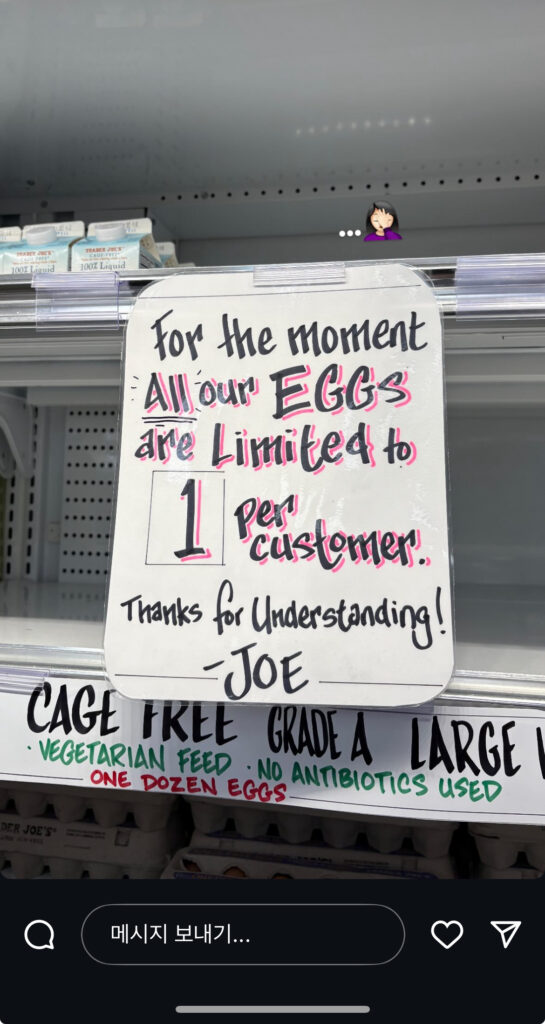 ...
TRADER JOE'S
CAGE FREE
100% Liquid
TRADER JOE'S
CAGE FREE
100% Liquid
For the moment
All our EGGS
are Limited to
1 per
customer.
Thanks for Understanding!
-JOE
CAGE FREE GRADE A LARGE
· VEGETARIAN FEED · NO ANTIBIOTICS USED
ONE DOZEN EGGS
DER JOE'S
메시지 보내기...